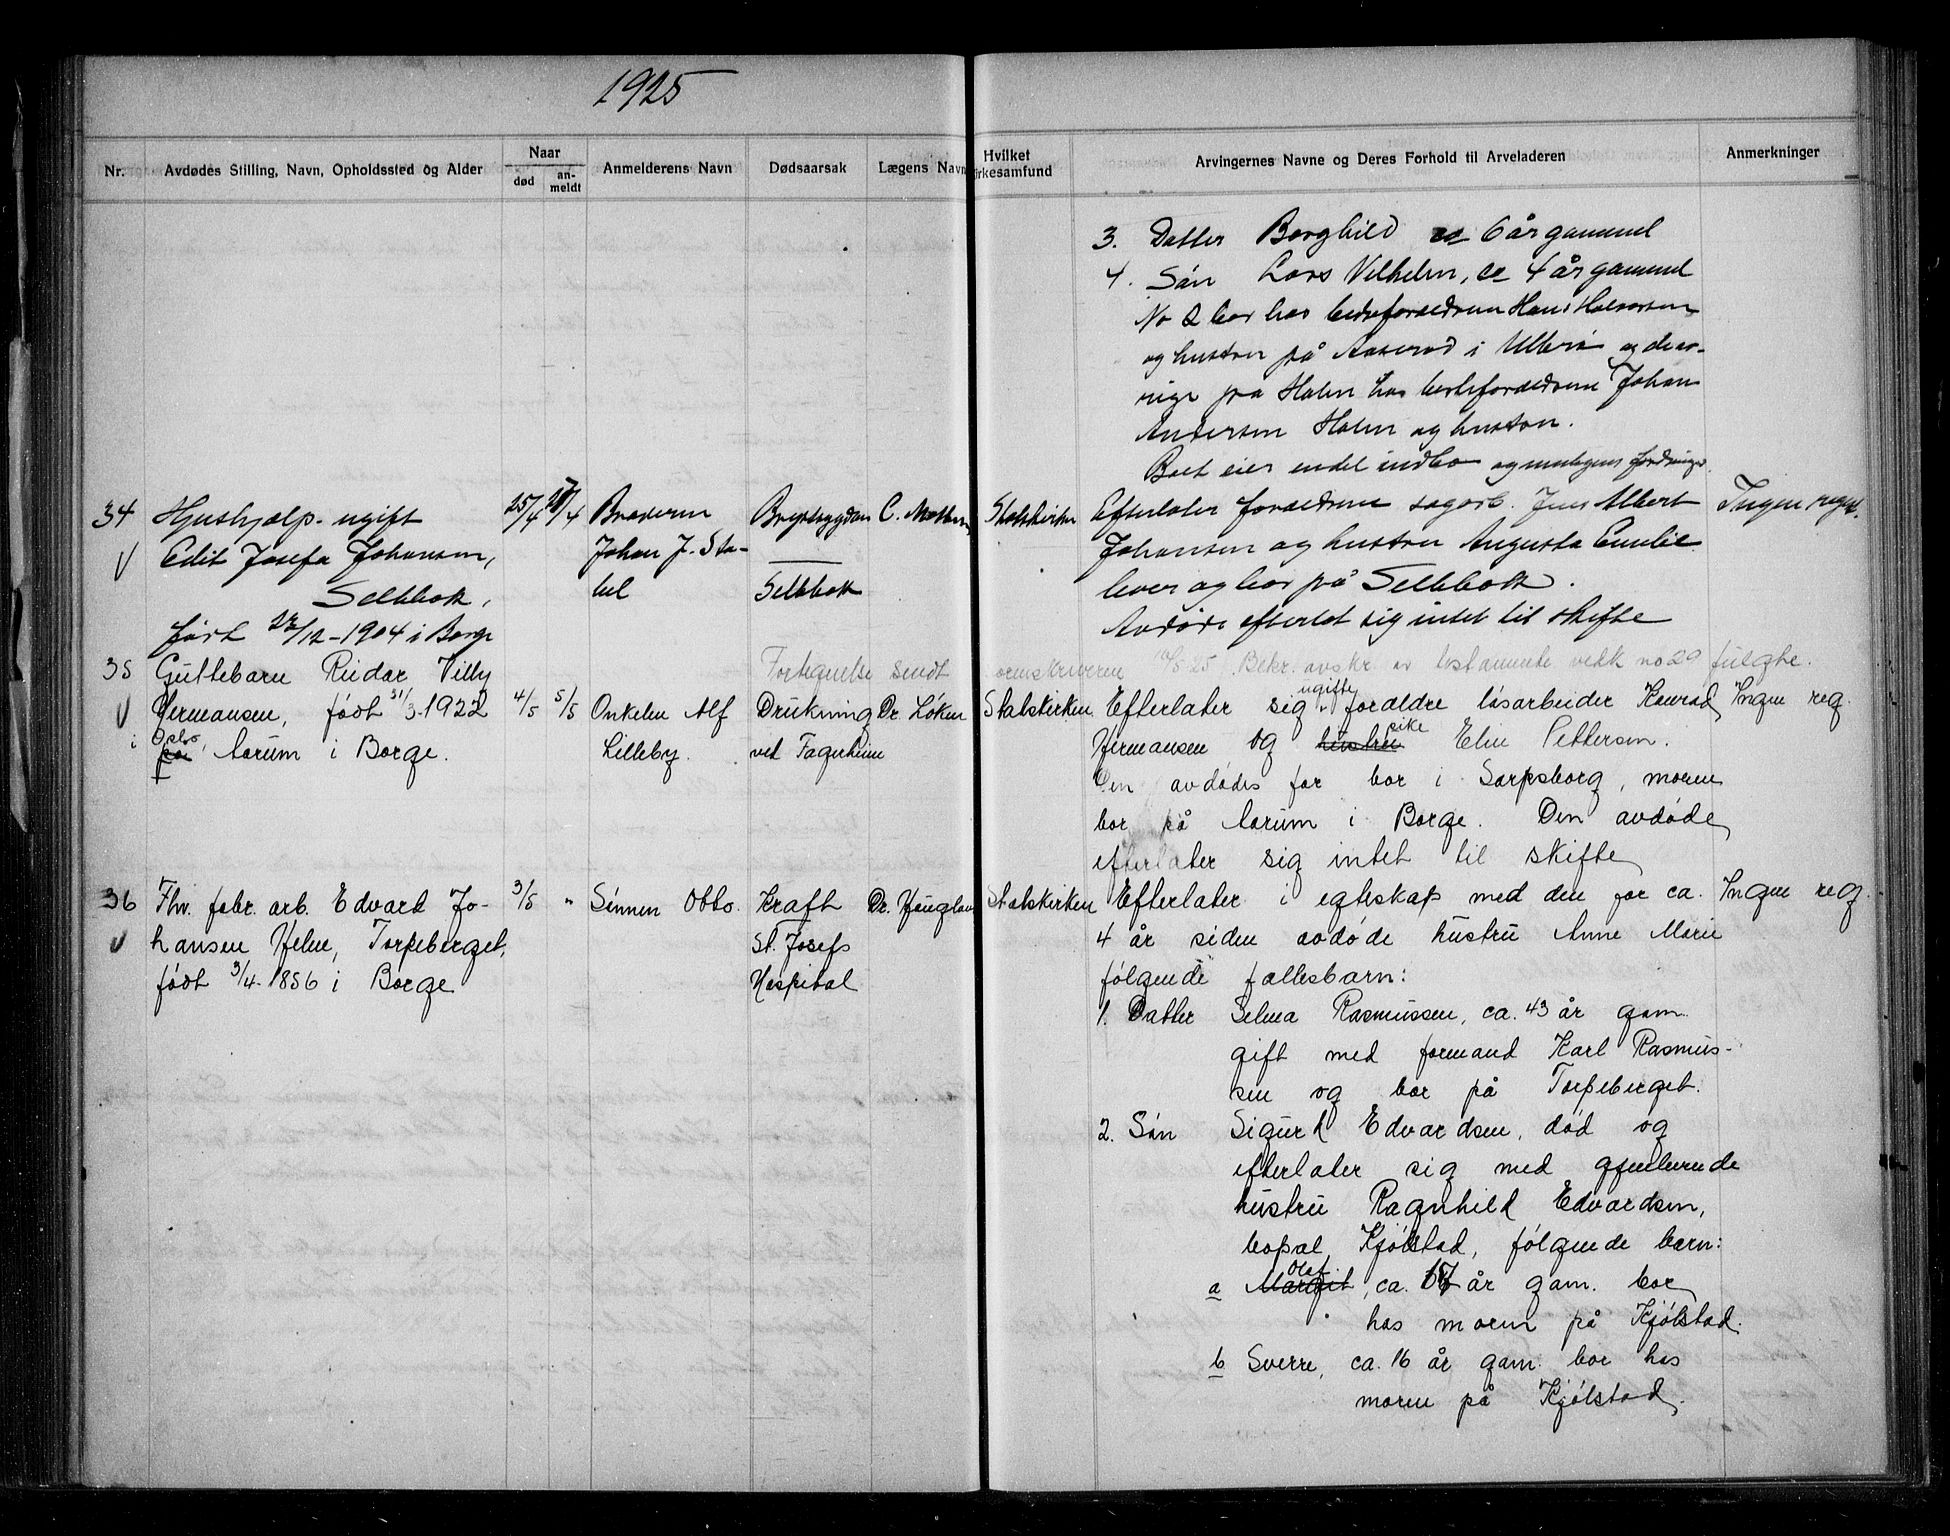 1925
Nr. Avdødes Stilling, Navn, Opholdssted og Alder Naar død anmeldt Anmelderens Navn Dødsaarsak Lægens Navn Hvilket irkesamfund Arvingernes Navne og Deres Forhold til Arveladeren Anmerkninger
3. Datter Borghild ca 6 år gammel
4. Søn Lars Vilhelm, ca 4 år gammel
No 2 bor hos besteforældrene Hans Halvorsen
og hustru på Aaserød i Ullerø og de øv-
rige på Holm hos besteforældrene Johan
Andersen Holm og hustru.
Boet eier endel indbo og muligens fordringer.
34 Hushjælp - ugift
Edit Josefa Johansen,
Sellebakk,
født 22/12-1904 i Borge
25/4 27/4
Broderen
Johan J. Sta-
bel
Brystsygdom
Sellebakk
C. Mathesen
Statskirken
Efterlater forældrene sagarb. Jens Albert
Johansen og hustru Augusta Emilie
lever og bor på Sellebakk.
Avdøde efterlot sig intet til skifte
Ingen regist.
Fortegnelse sendt sorenskriveren 10/8 25. Bekr. avskr. av testamente vedk no 29 fulgte.
35 Guttebarn Reidar Villy
Hermansen, født 31/3 1922
i Oslo, på Aarum i Borge.
4/5 5/5
Onkelen Alf
Lilleby.
Drukning
ved Fagerheim
Dr. Løken
Statskirken
Efterlater sig ugifte forældre løsarbeider Konrad
Hermansen og hustru pike Elin Pettersen.
Den avdødes far bor i Sarpsborg, moren
bor på Aarum i Borge. Den avdøde
efterlater sig intet til skifte
Ingen reg.
36 Fhv. fabr. arb. Edvard Jo-
hansen Helne, Torpeberget,
født 3/4-1856 i Borge
3/5 "
Sønnen Otto.
Kræft
St. Josefs
Hospital
Dr. Hougland
Statskirken
Efterlater i egteskap med den for ca.
4 år siden avdøde hustru Anne Marie
følgende fællesbarn:
1. Datter Selma Rasmussen, ca. 43 år gam.
gift med formand Karl Rasmus-
sen og bor på Torpeberget.
2. Søn Sigurd Edvardsen, død og
efterlater sig med gjenlevende
hustru Ragnhild Edvardsen,
bopæl, Kjølstad, følgende barn:
a Margit Olaf, ca. 17 år gam. bor
hos moren på Kjølstad.
b Sverre, ca. 16 år gam. bor hos
moren på Kjølstad.
Ingen reg.